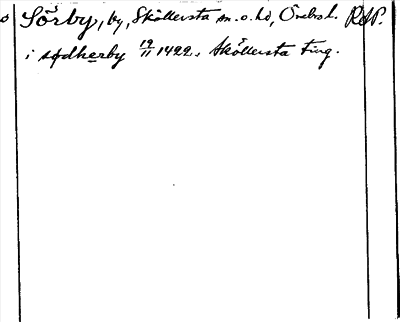 Sörby, by, Sköllersta sn. o. hd, Örebro l. RAP.
i sødherby 19/11 1422. Sköllersta ting.